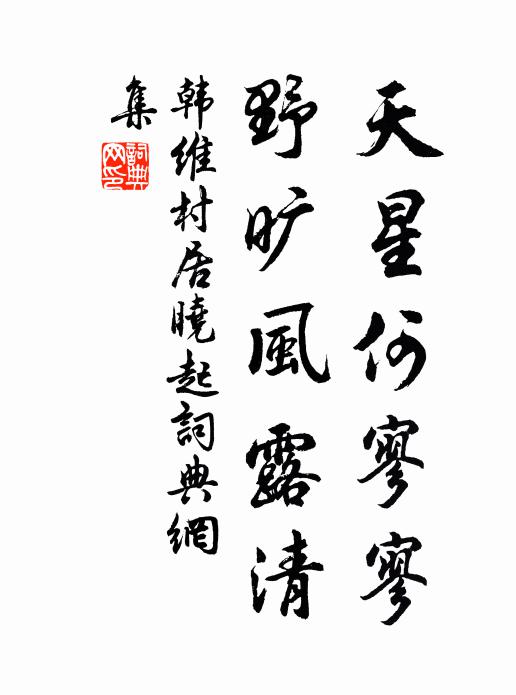 天星何寥寥
野旷風露清
韩维村居曉起詞典網
集
詞典
网印